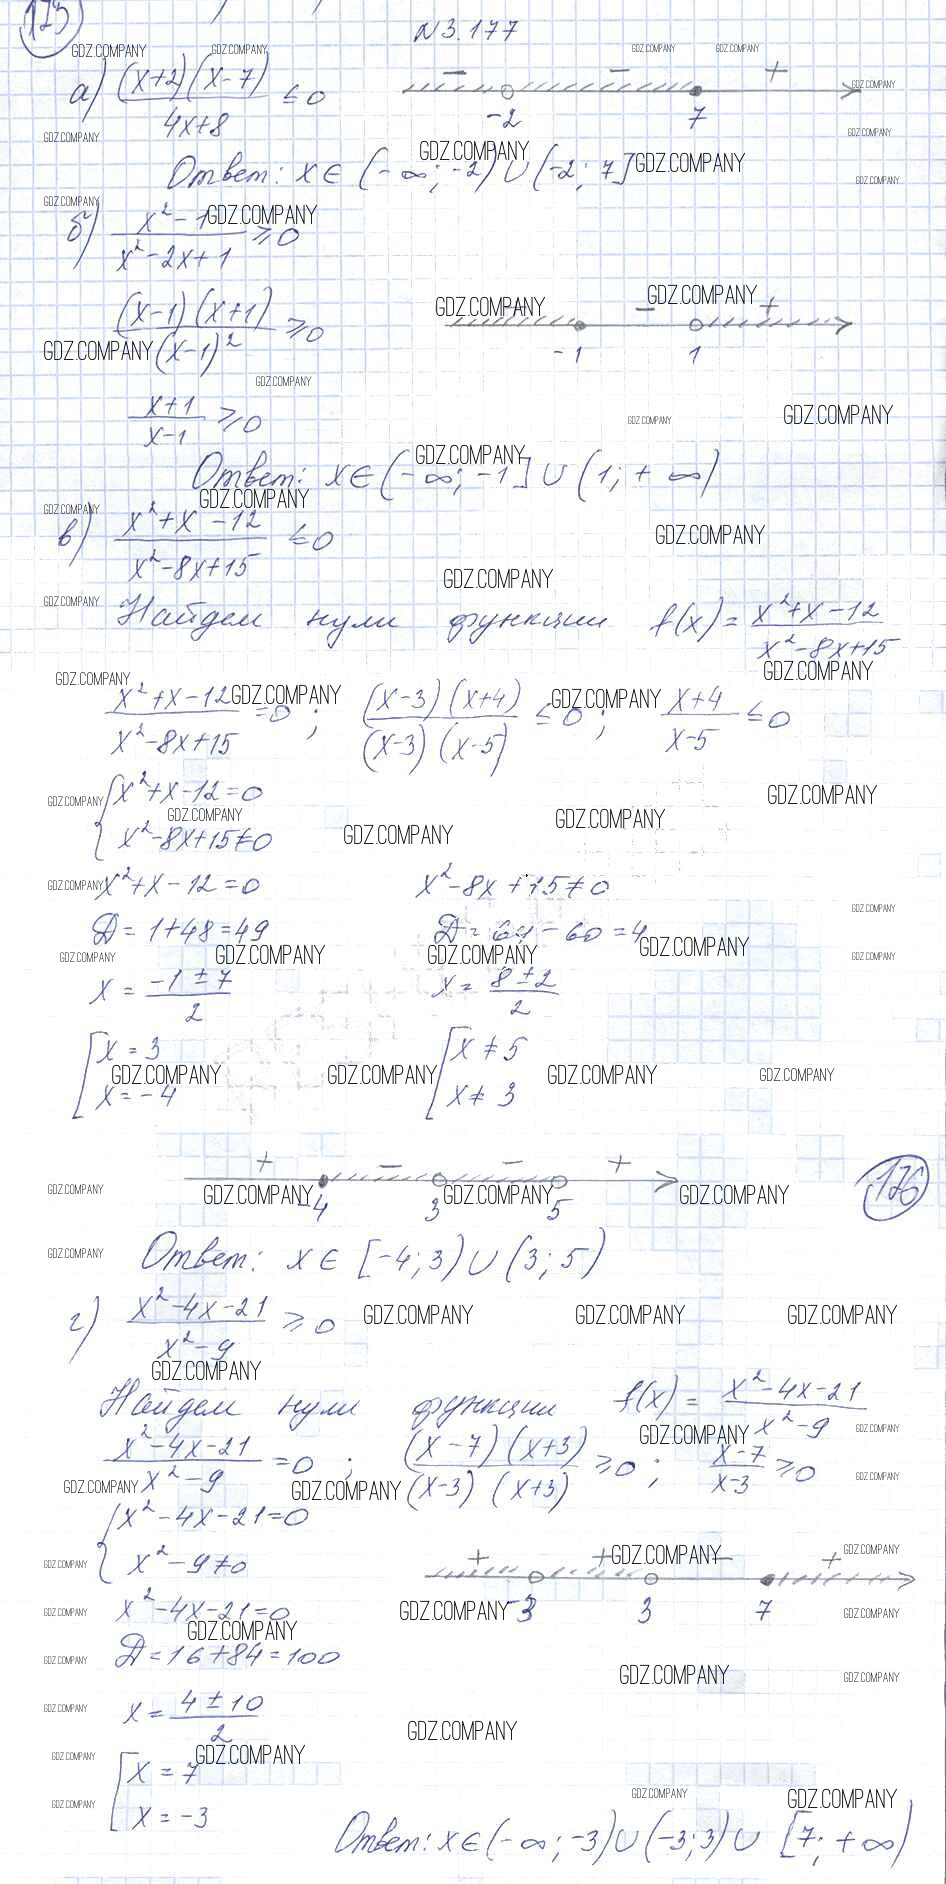 123
N 3.177
а) (x+2)(x-7) / 4x+8 ≤ 0
- - +
-2 7
Ответ: x ∈ (-∞; -2) ∪ (-2; 7]
б) x²-1 / x²-2x+1 ≥ 0
(x-1)(x+1) / (x-1)² ≥ 0
+ - +
-1 1
x+1 / x-1 ≥ 0
Ответ: x ∈ (-∞; -1] ∪ (1; +∞)
в) x²+x-12 / x²-8x+15 ≤ 0
Найдем нули функции f(x) = x²+x-12 / x²-8x+15
x²+x-12 / x²-8x+15 = 0; (x-3)(x+4) / (x-3)(x-5) ≤ 0; x+4 / x-5 ≤ 0
{ x²+x-12=0
x²-8x+15≠0
x²+x-12=0 x²-8x+15≠0
Д=1+48=49 Д=64-60=4
x = -1±7 / 2 x = 8±2 / 2
[ x=3 [ x≠5
x=-4 x≠3
+ - - +
-4 3 5
176
Ответ: x ∈ [-4; 3) ∪ (3; 5)
г) x²-4x-21 / x²-9 ≥ 0
Найдем нули функции f(x) = x²-4x-21 / x²-9
x²-4x-21 / x²-9 = 0; (x-7)(x+3) / (x-3)(x+3) ≥ 0; x-7 / x-3 ≥ 0
{ x²-4x-21=0
x²-9≠0
+ + - +
-3 3 7
x²-4x-21=0
Д=16+84=100
x = 4±10 / 2
[ x=7
x=-3
Ответ: x ∈ (-∞; -3) ∪ (-3; 3) ∪ [7; +∞)
GDZ.COMPANY